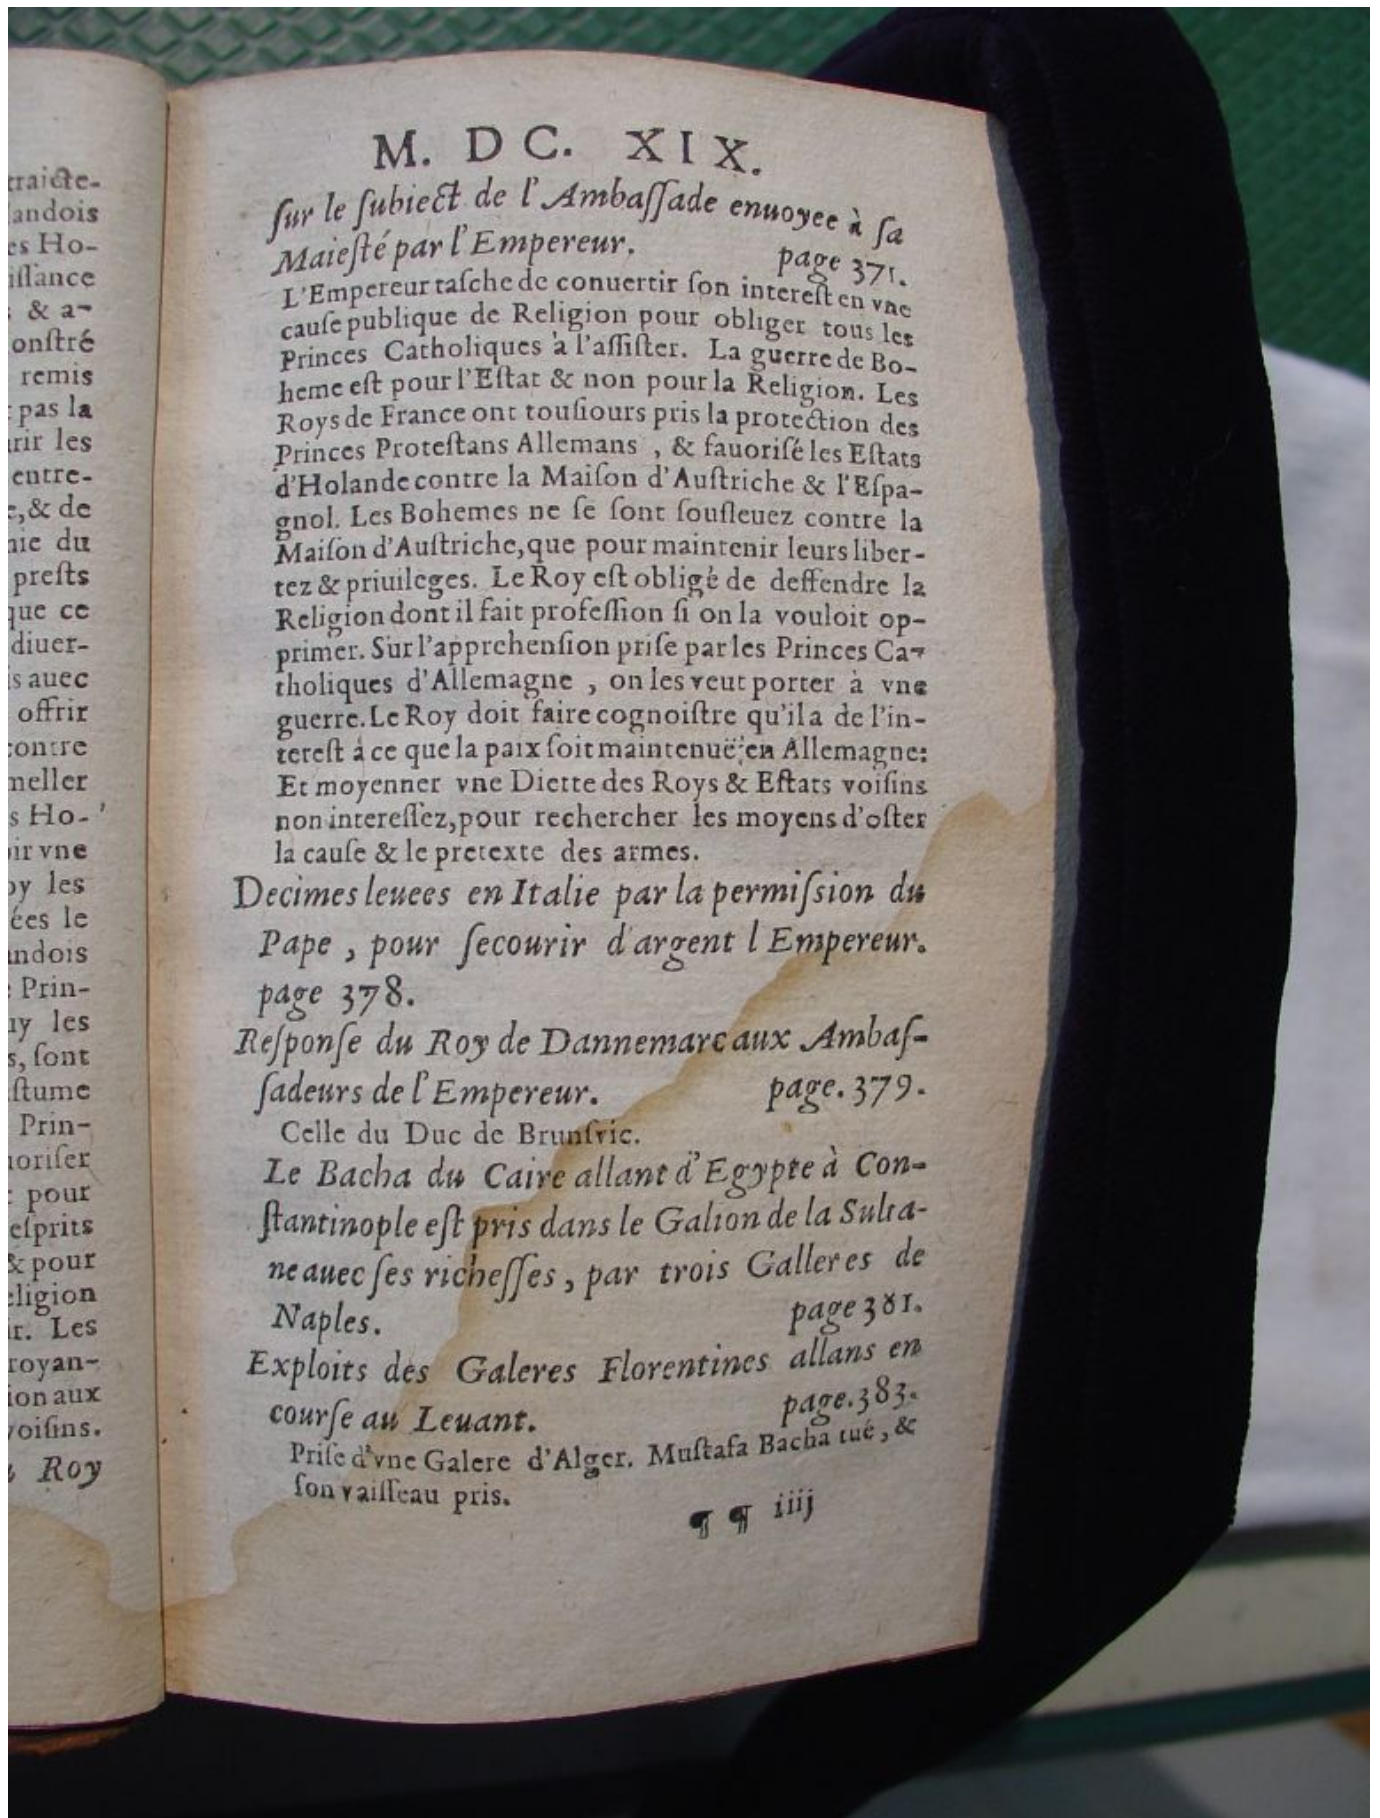 raicte-
andois
es Ho-
issance
& a-
onstré
remis
pas la
rir les
entre-
e, & de
nie du
prests
que ce
diuer-
s auec
offrir
contre
meller
s Ho-
oir vne
oy les
ées le
andois
Prin-
uy les
s, sont
stume
Prin-
horiser
pour
esprits
& pour
eligion
ir. Les
royan-
ion aux
voisins.
Roy
M. DC. XIX.
sur le subiect de l'Ambassade enuoyee à sa
Maiesté par l'Empereur. page 371.
L'Empereur tasche de conuertir son interest en vne
cause publique de Religion pour obliger tous les
Princes Catholiques à l'assister. La guerre de Bo-
heme est pour l'Estat & non pour la Religion. Les
Roys de France ont tousiours pris la protection des
Princes Protestans Allemans , & fauorisé les Estats
d'Holande contre la Maison d'Austriche & l'Espa-
gnol. Les Bohemes ne se sont sousleuez contre la
Maison d'Austriche, que pour maintenir leurs liber-
tez & priuileges. Le Roy est obligé de deffendre la
Religion dont il fait profession si on la vouloit op-
primer. Sur l'apprehension prise par les Princes Ca-
tholiques d'Allemagne , on les veut porter à vne
guerre. Le Roy doit faire cognoistre qu'il a de l'in-
terest à ce que la paix soit maintenuë en Allemagne:
Et moyenner vne Diette des Roys & Estats voisins
non interessez, pour rechercher les moyens d'oster
la cause & le pretexte des armes.
Decimes leuees en Italie par la permission du
Pape , pour secourir d'argent l Empereur.
page 378.
Response du Roy de Dannemarc aux Ambas-
sadeurs de l'Empereur. page. 379.
Celle du Duc de Brunsvic.
Le Bacha du Caire allant d'Egypte à Con-
stantinople est pris dans le Galion de la Sulta-
ne auec ses richesses, par trois Galleres de
Naples. page 381.
Exploits des Galeres Florentines allans en
course au Leuant. page. 383.
Prise d'vne Galere d'Alger. Mustafa Bacha tué, &
son vaisseau pris.
¶ ¶ iiij